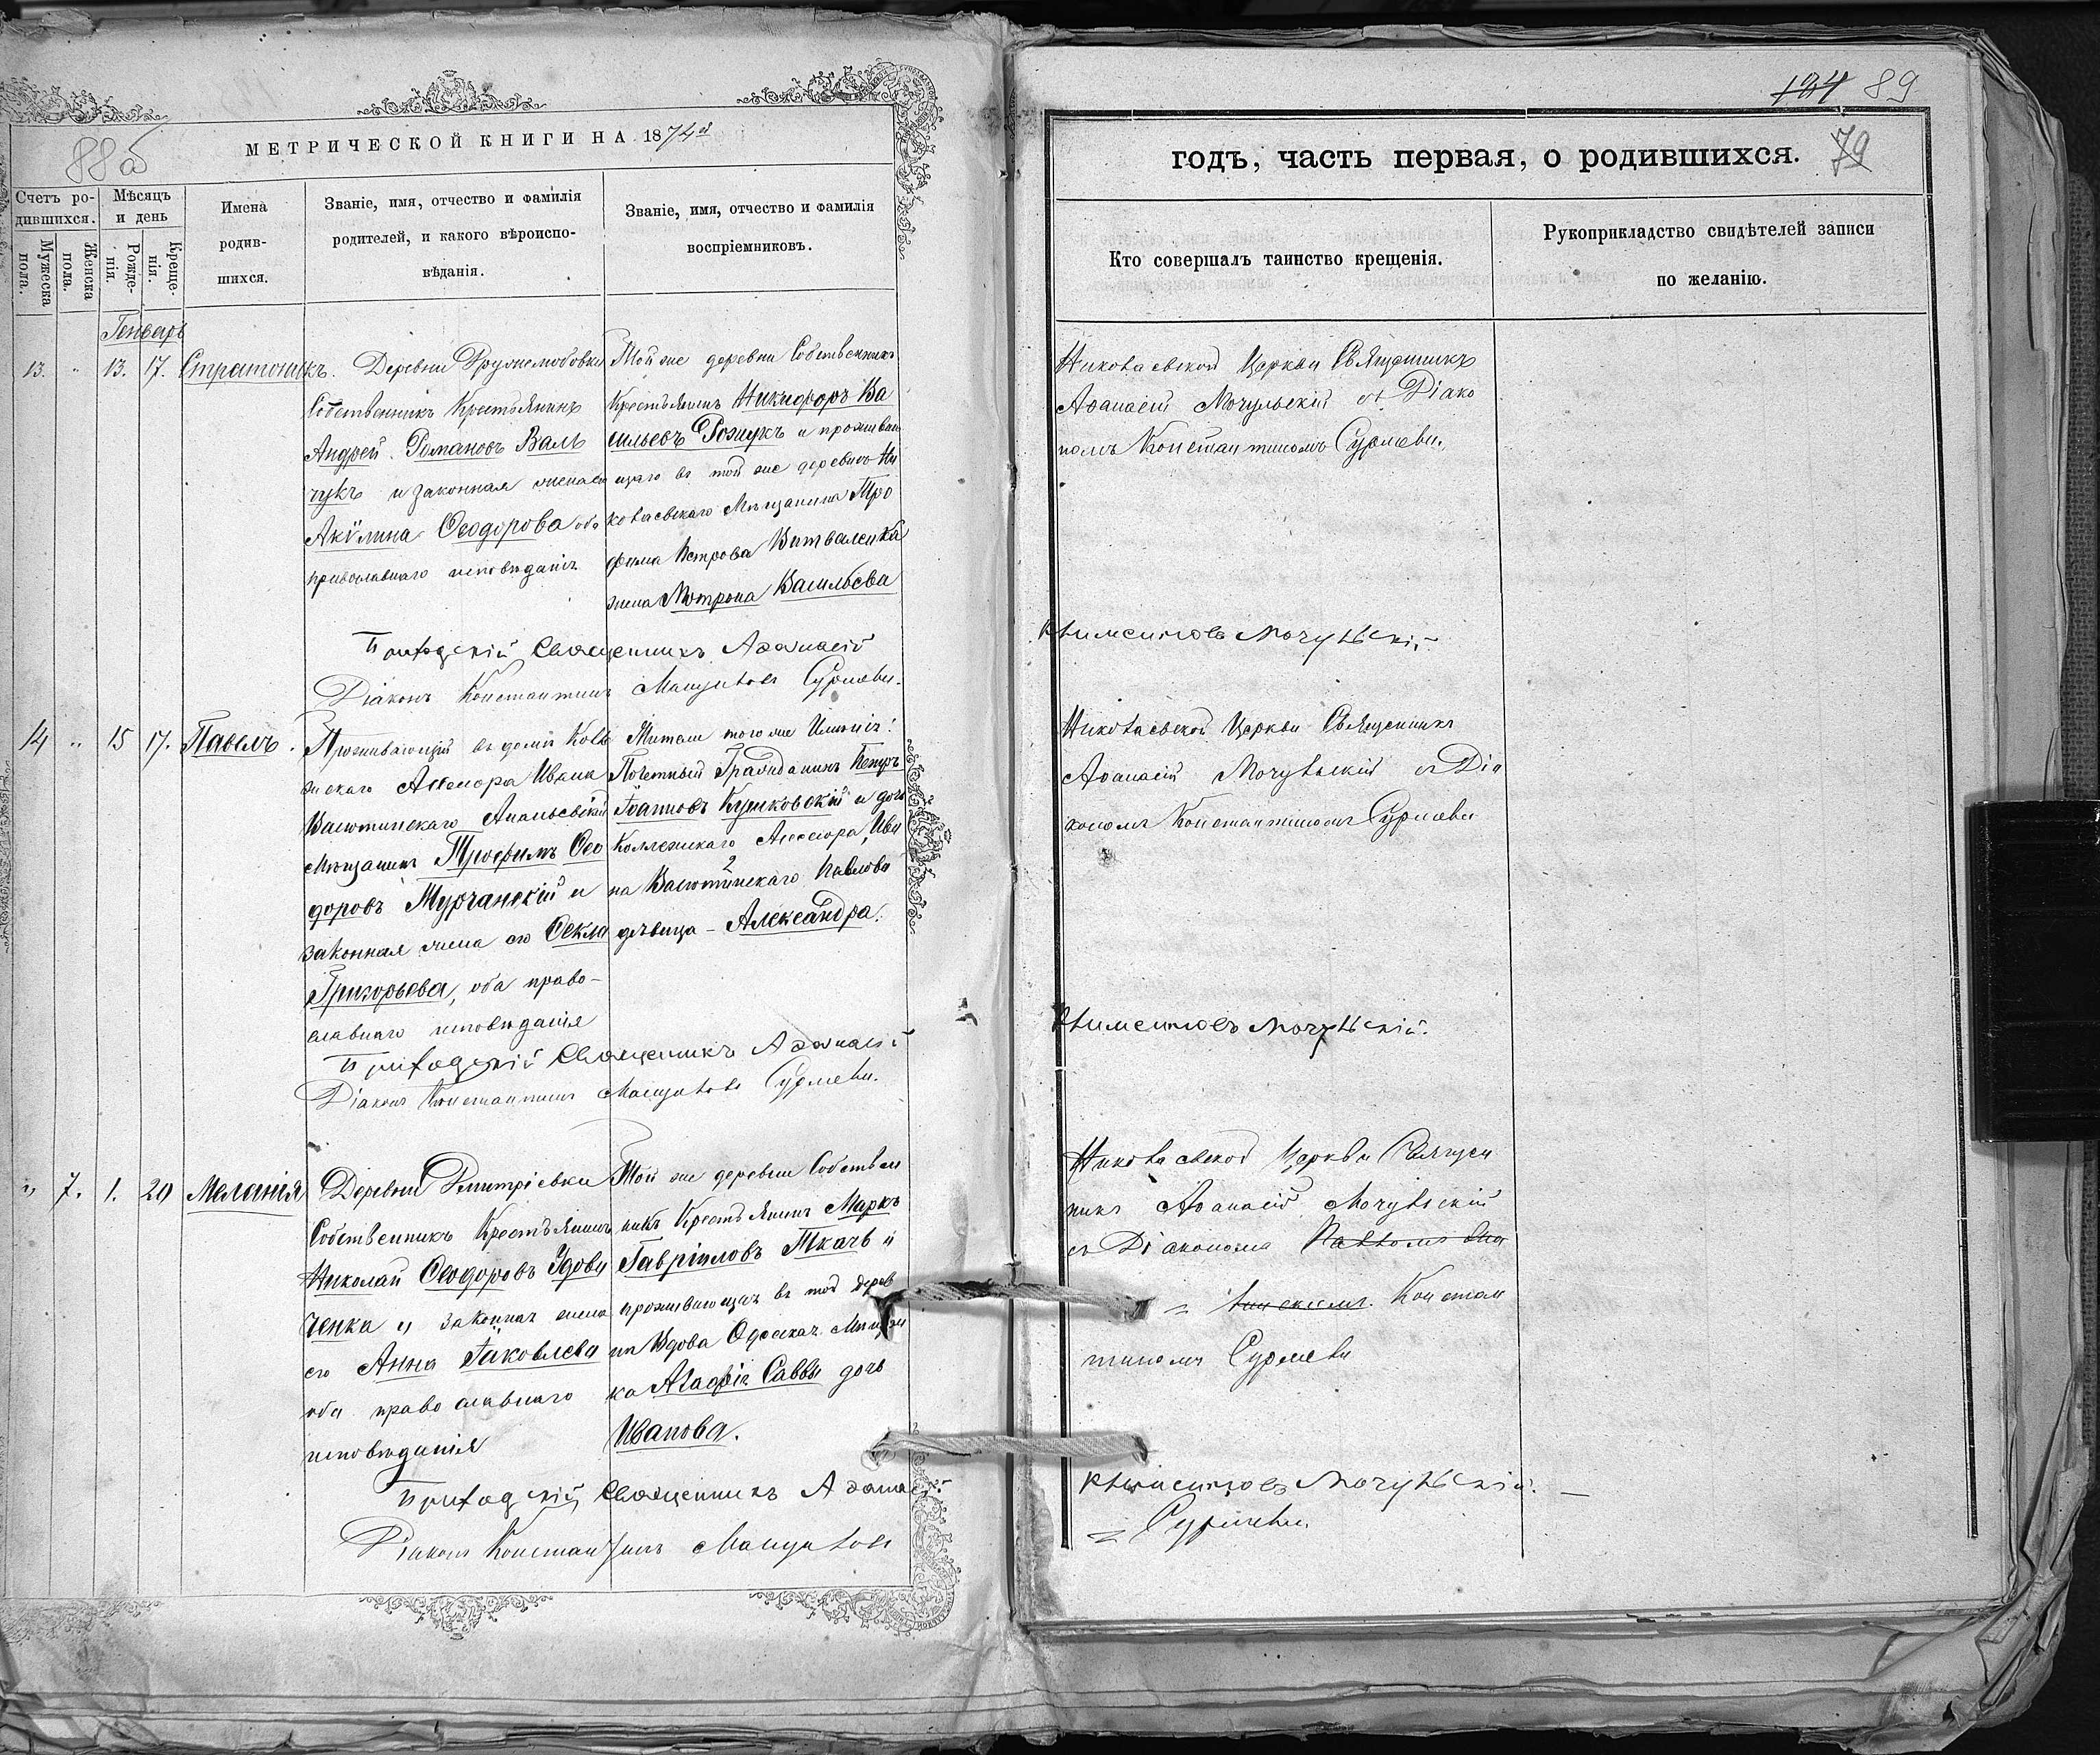 88 об
МЕТРИЧЕСКОЙ КНИГИ НА 1874й
Счетъ ро-
дившихся.
Мужеска
пола.
Женска
пола.
Мѣсяцъ
и день
Рожде-
нія.
Креще-
нія.
Имена
родив-
шихся.
Званіе, имя, отчество и фамилія
родителей, и какого вѣроиспо-
вѣданія.
Званіе, имя, отчество и фамилія
воспріемниковъ.
Генварь
13. " 13. 17. Стратоникъ.
Деревни Дружелюбовки
Собственникъ Крестьянинъ
Андрей Романовъ Валь
чукъ и законная жена его
Акѵлина Ѳеодорова оба
православнаго исповѣданія
Той же деревни Собственникъ
Крестьянинъ Никифоръ Ва
сильевъ Рощукъ и проживаю
щаго въ той же деревнѣ Ни
колаевскаго Мѣщанина Тро
фима Петрова
жена Матрона Васильева
Приходскій Священникъ Аѳанасій
Діаконъ Константинъ
14 " 15 17. Павелъ.
Проживающій въ домѣ Колле
жскаго Ассесора Ивана
Васютинскаго Ананьевскій
Мѣщанинъ Трофимъ Ѳео
доровъ Мурчанскій и
законная жена его Ѳекла
Григорьева, оба право-
славнаго исповѣданія
Житель того же Имѣнія:
Почетный Гражданинъ Петръ
Іоанновъ Кушковскій и дочь
Коллежскаго Ассесора, Ива
на Васютинскаго 2 Павлова
дѣвица - Александра.
Приходскій Священникъ Аѳанасій
Діаконъ Константинъ
" 7. 1. 20 Меланія
Деревни Дмитріевки
Собственникъ Крестьянинъ
Николай Ѳеодоровъ Удови
ченко и законная жена
его Анна Іаковлева
оба православнаго
исповѣданія
Той же деревни Собствен
никъ Крестьянинъ Маркъ
Гавріиловъ Ткачъ и
проживающая въ той дерев
нѣ Вдова Одесская Мѣщан
ка Агафія Саввы дочь
Иванова.
Приходскій Священникъ Аѳанасій
Діаконъ Константинъ
104 89
годъ, часть первая, о родившихся. 79
Кто совершалъ таинство крещенія.
Рукоприкладство свидѣтелей записи
по желанію.
Николаевской Церкви Священникъ
Аѳанасій Мочульскій съ Діако
номъ Константиномъ
Климентовъ Мочульскій
Николаевской Церкви Священникъ
Аѳанасій Мочульскій съ Діа
кономъ Константиномъ
Климентовъ Мочульскій.
Николаевской Церкви Священ
никъ Аѳанасій Мочульскій
съ Діакономъ
Констан
тиномъ
Климентовъ Мочульскій.